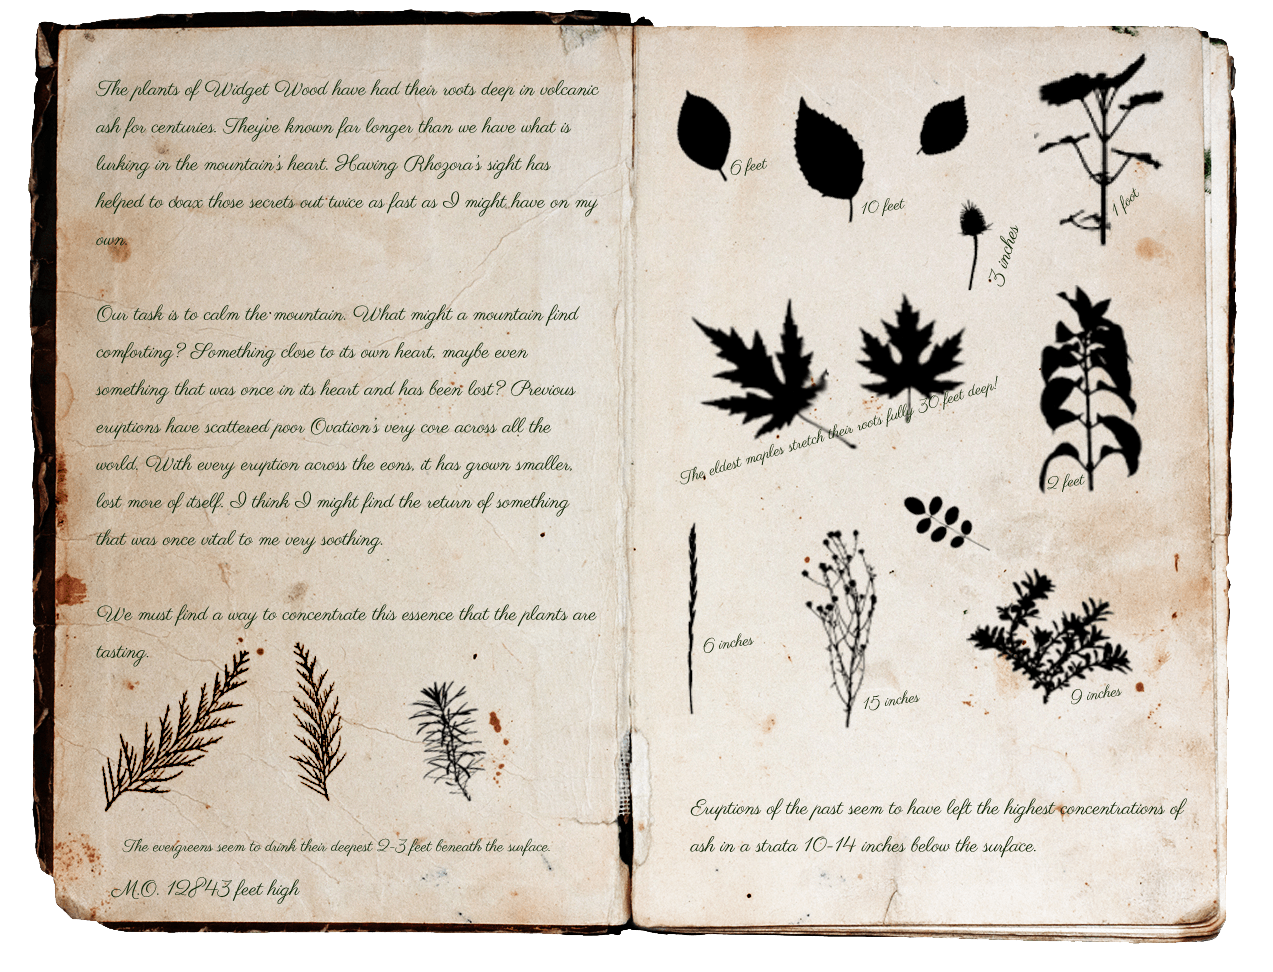 The plants of Widget Wood have had their roots deep in volcanic
ash for centuries. They've known far longer than we have what is
lurking in the mountain's heart. Having Rhozora's sight has
helped to coax those secrets out twice as fast as I might have on my
own.
Our task is to calm the mountain. What might a mountain find
comforting? Something close to its own heart, maybe even
something that was once in its heart and has been lost? Previous
eruptions have scattered poor Ovation's very core across all the
world. With every eruption across the eons, it has grown smaller,
lost more of itself. I think I might find the return of something
that was once vital to me very soothing.
We must find a way to concentrate this essence that the plants are
tasting.
The evergreens seem to drink their deepest 2-3 feet beneath the surface.
M.O. 12843 feet high
6 feet
10 feet
1 foot
3 inches
The eldest maples stretch their roots fully 30 feet deep!
2 feet
6 inches
15 inches
9 inches
Eruptions of the past seem to have left the highest concentrations of
ash in a strata 10-14 inches below the surface.